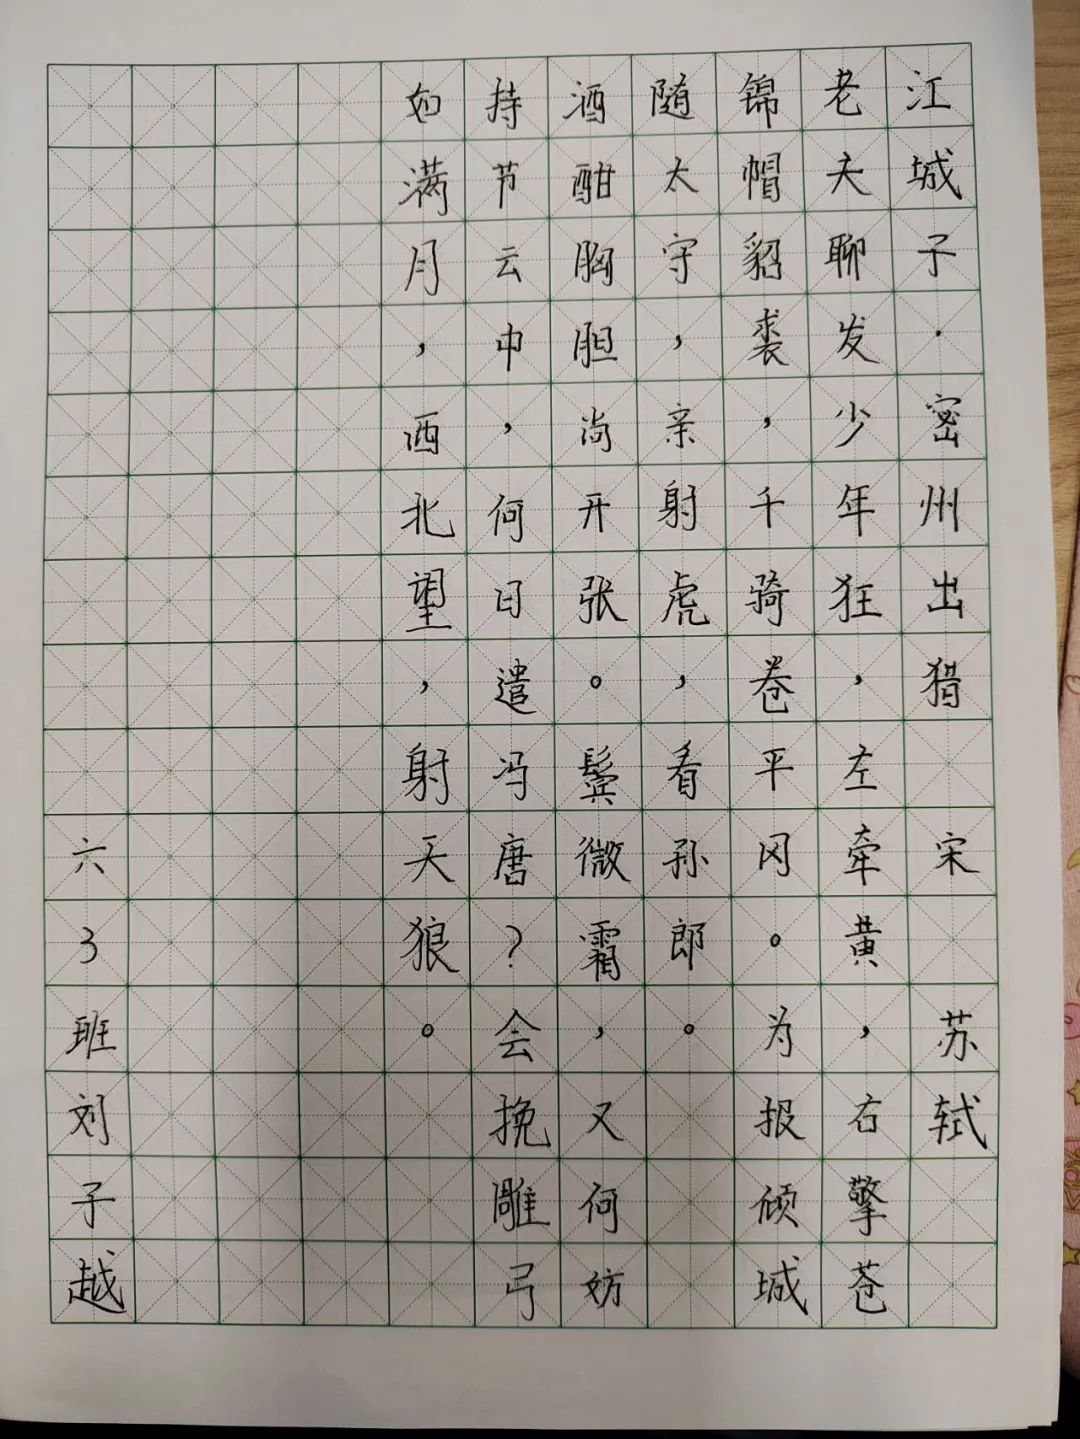 江城子·密州出猎 宋 苏轼
老夫聊发少年狂，左牵黄，右擎苍
锦帽貂裘，千骑卷平冈。为报倾城
随太守，亲射虎，看孙郎。
酒酣胸胆尚开张。鬓微霜，又何妨
持节云中，何日遣冯唐？会挽雕弓
如满月，西北望，射天狼。
六3班刘子越